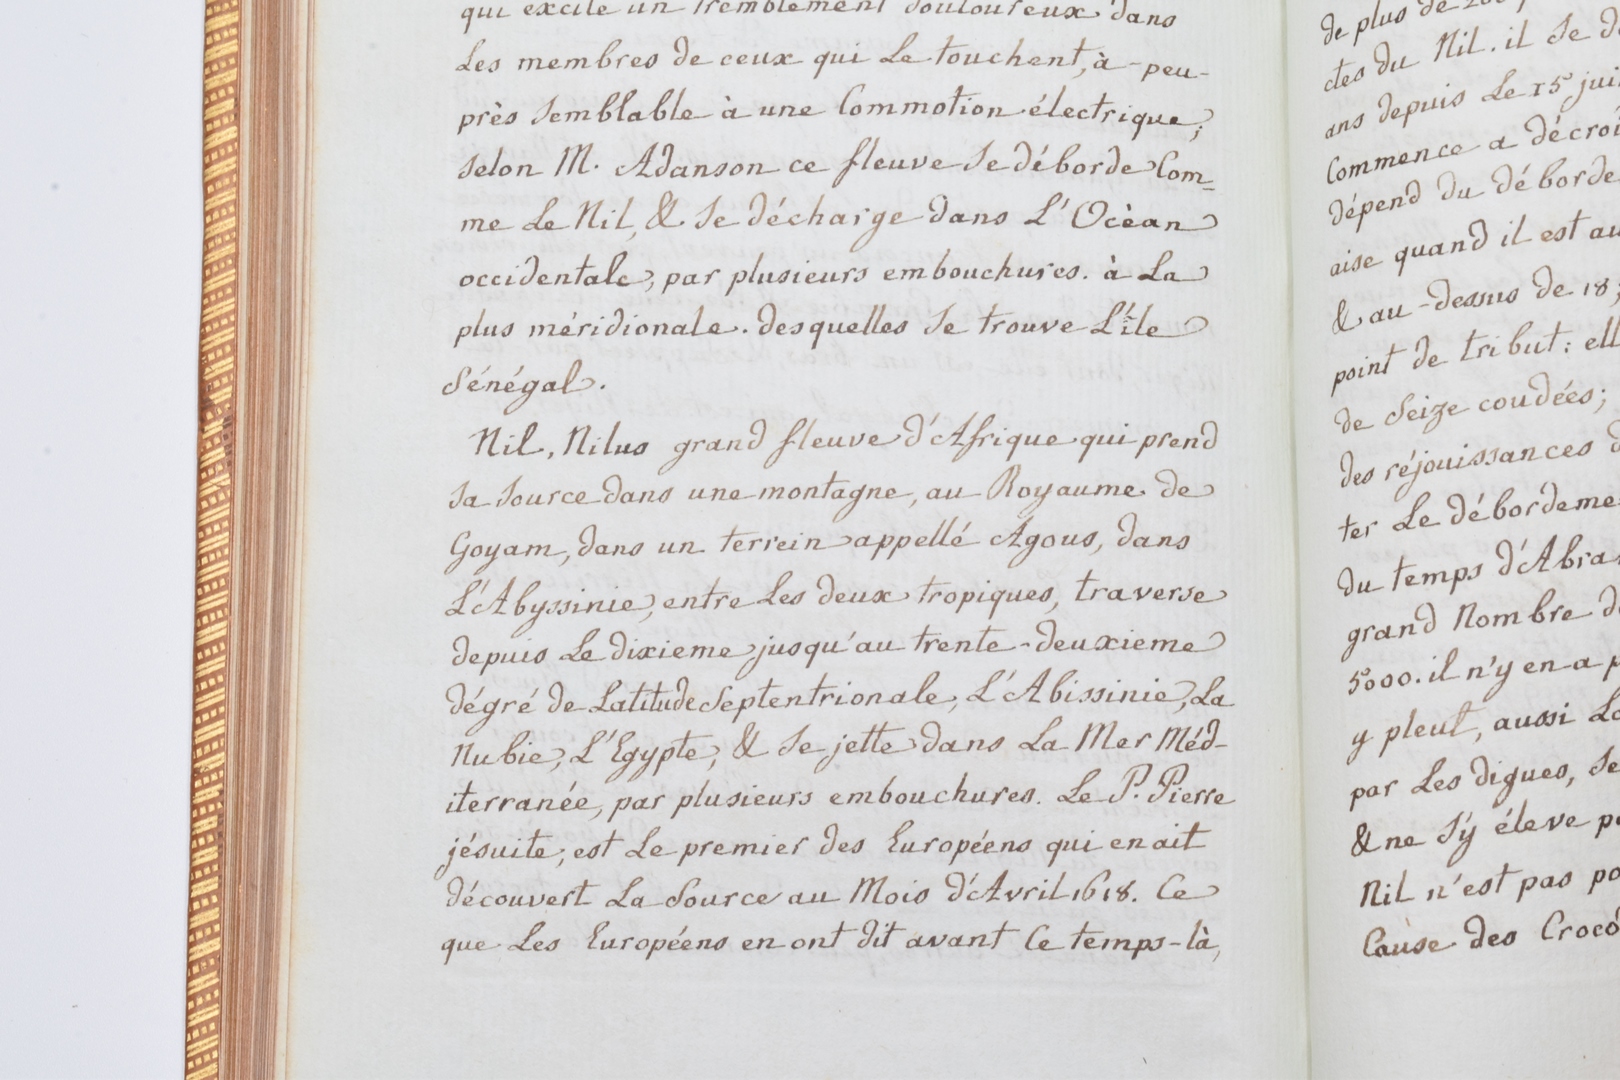 qui excite un tremblement douloureux dans
Les membres de ceux qui Le touchent, à-peu-
près semblable à une Commotion électrique;
selon M. Adanson ce fleuve se déborde Com-
me Le Nil, & se décharge dans L'Ocèan
occidentale, par plusieurs embouchures. à La
plus méridionale. desquelles se trouve L'île
Sénégal.
Nil, Nilus grand fleuve d'Afrique qui prend
sa source dans une montagne, au Royaume de
Goyam, dans un terrein appellé Agous, dans
L'Abyssinie, entre Les deux tropiques, traverse
depuis Le dixieme jusqu'au trente-deuxieme
dégré de Latitude Septentrionale, L'Abissinie, La
Nubie, L'Egypte, & se jette dans La Mer Méd-
iterranée, par plusieurs embouchures. Le P. Pierre
jésuite, est Le premier des Européens qui en ait
découvert La Source au Mois d'Avril 1618. Ce
que Les Européens en ont dit avant Ce temps-là,
de plus de
ctes du Nil. il se
ans depuis Le 15 jui
Commence a décroi
dépend du déborde
aise quand il est au
& au-dessus de 18;
point de tribut: ell
de Seize coudées;
des réjouissances d
ter Le débordeme
du temps d'Abra
grand Nombre d
5000. il n'y en a p
y pleut, aussi La
par Les digues, se
& ne s'y éleve p
Nil n'est pas po
Cause des Croco